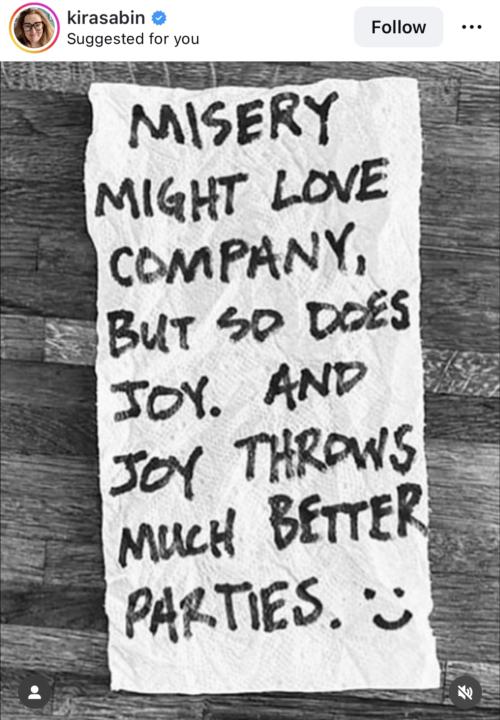 kirasabin
Suggested for you
Follow
MISERY
MIGHT LOVE
COMPANY,
BUT SO DOES
JOY. AND
JOY THROWS
MUCH BETTER
PARTIES. :)